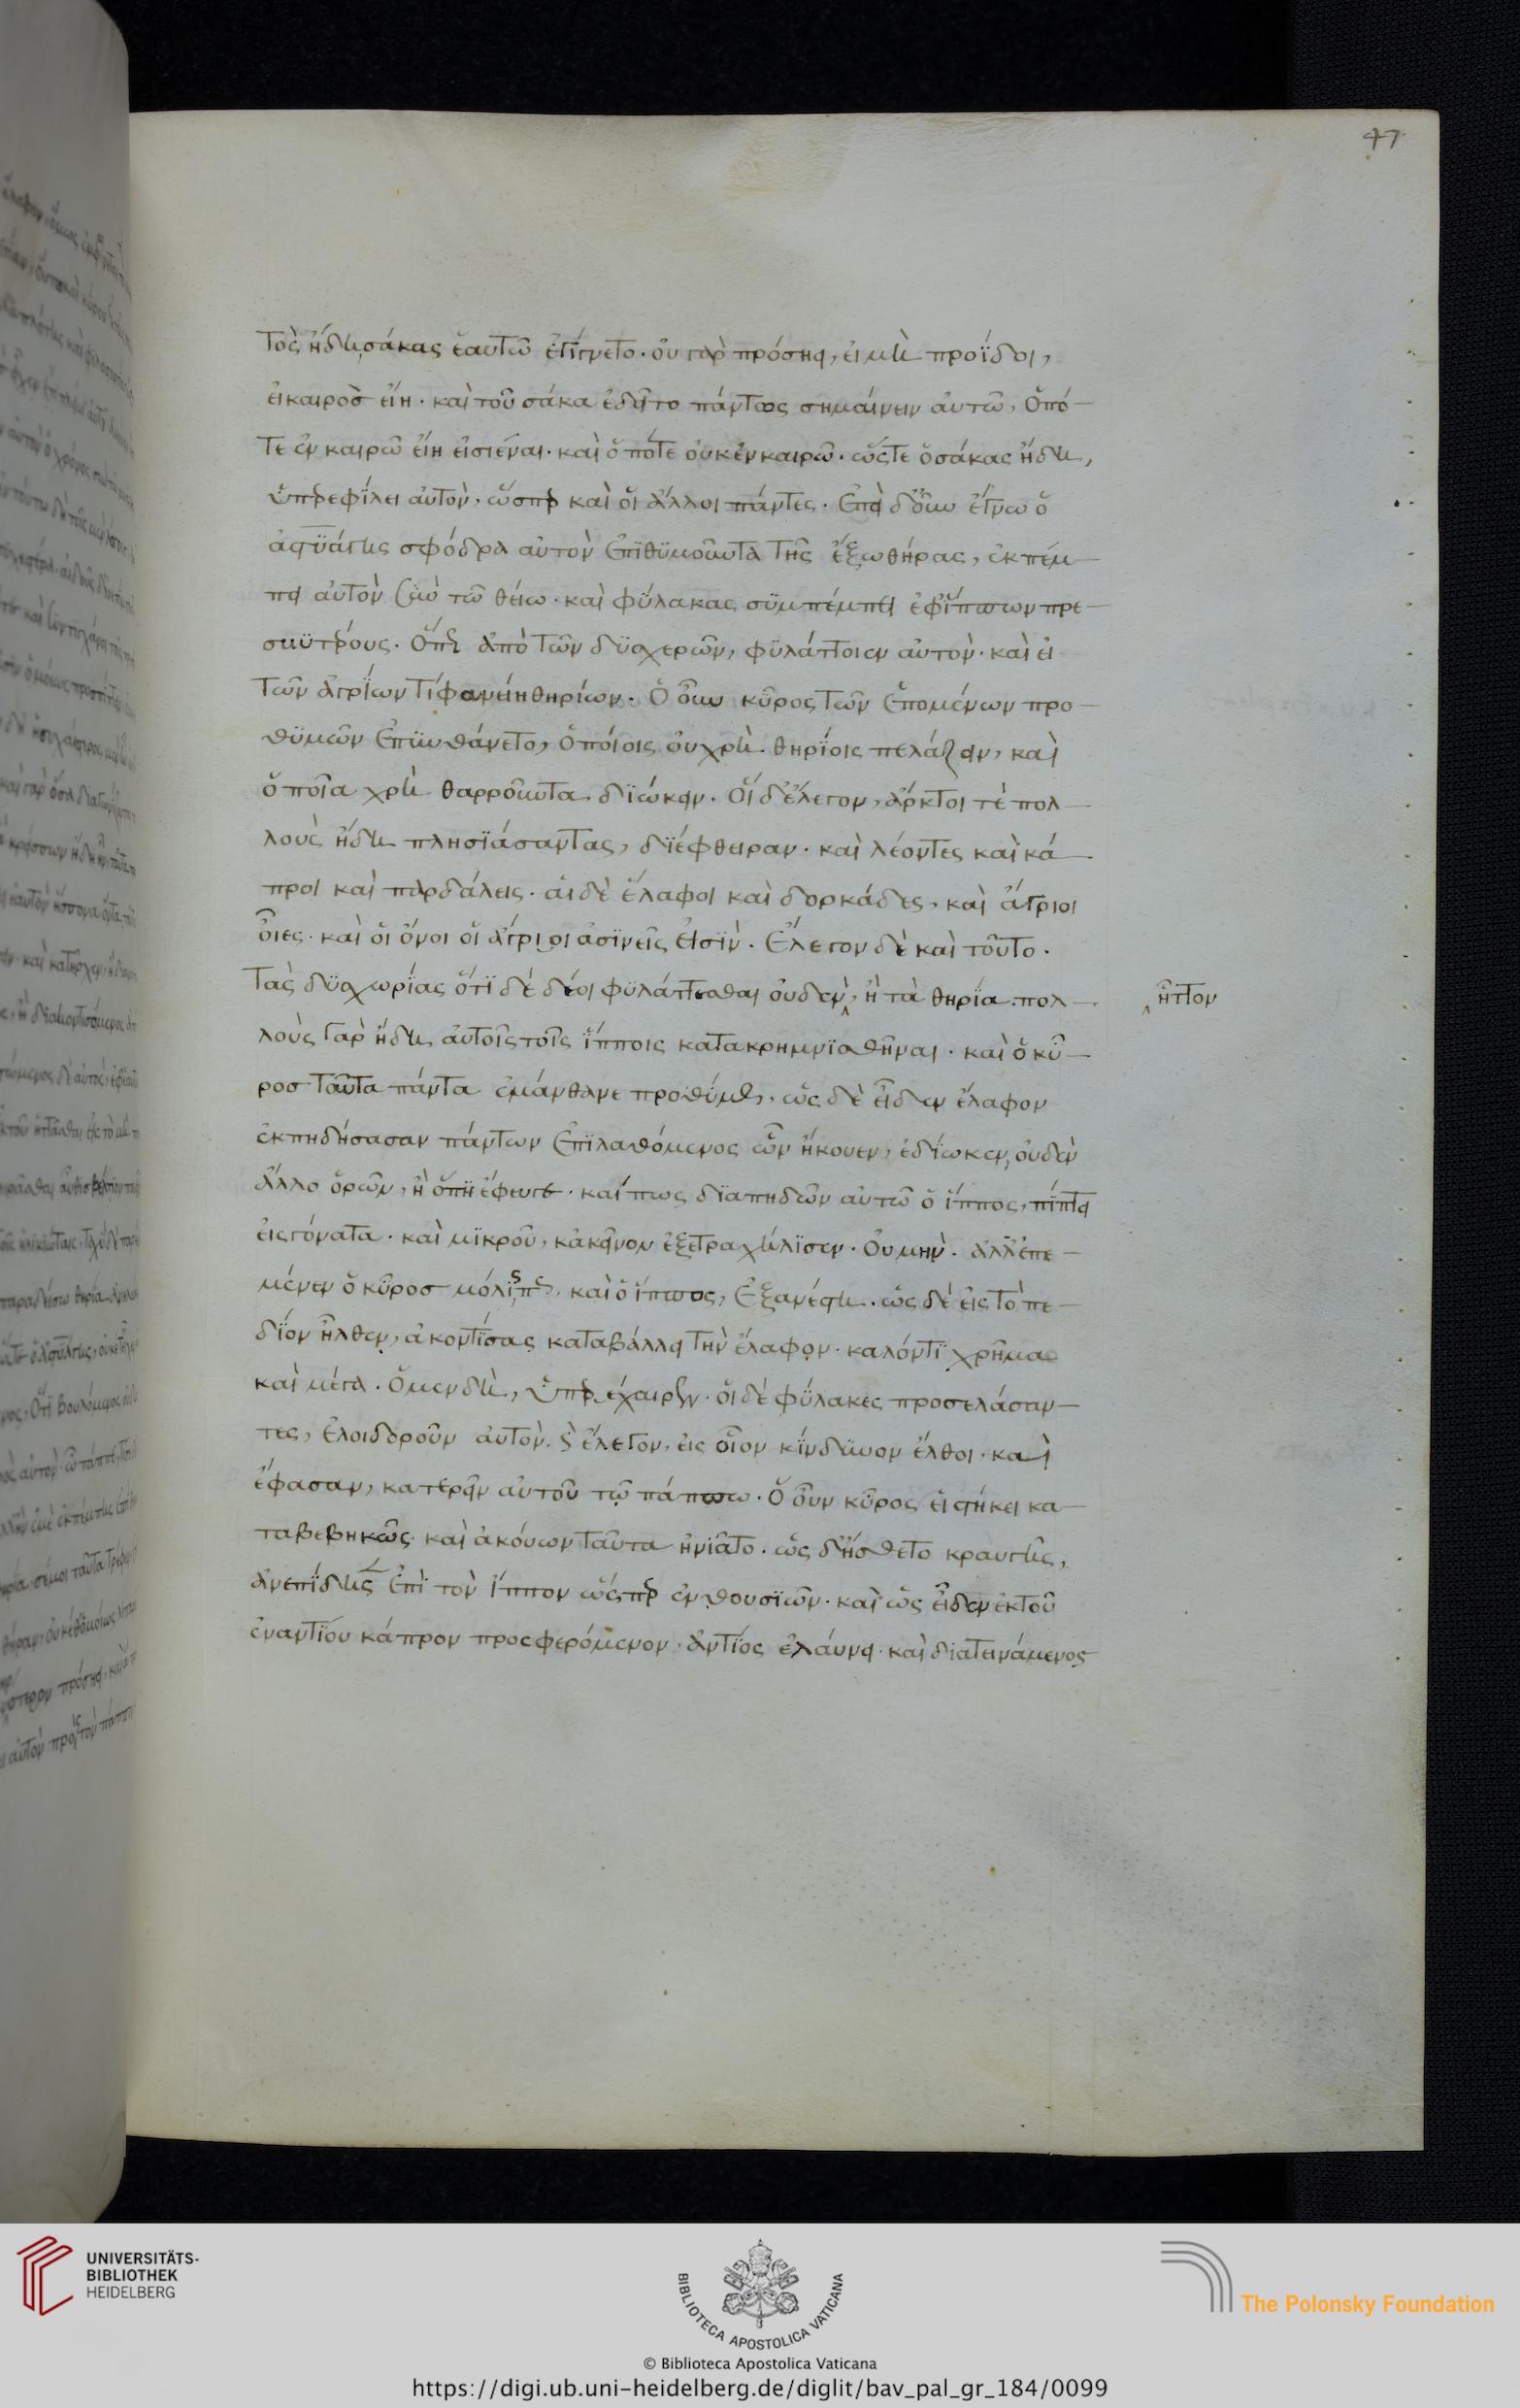 47
τὸς ἤδη σάκας ἑαυτῶ ἐγίγνετο· οὐ γὰρ πρόσηει, εἰ μὴ προΐδοι,
εἰ καιρὸσ εἴη· καὶ τοῦ σάκα ἐδεῖτο πάντως σημαίνειν αὐτῶ, ὁπό-
τε ἐν καιρῶ εἴη εἰσιέναι· καὶ ὁπότε οὐκ ἐν καιρῶ· ὥστε ὁ σάκας ἤδη,
ὑπερεφίλει αὐτὸν, ὥσπερ καὶ οἱ ἄλλοι πάντες. Ἐπεὶ δ' οὖν ἔγνω ὁ
ἀστϋάγης σφόδρα αὐτὸν ἐπϊθϋμοῦντα τῆς ἔξω θήρας, ἐκπέμ-
πει αὐτὸν σὺν τῶ θείω· καὶ φύλακας σϋμπέμπει ἐφ' ἵππων πρε-
σβϋτέρους. Ὅπως ἀπὸ τῶν δϋσχερῶν, φϋλάττοιεν αὐτὸν· καὶ εἰ
τῶν ἀγρΐων τί φανείη θηρίων. Ὁ οὖν κῦρος τῶν ἑπομένων προ-
θϋμῶν ἐπϋνθάνετο, ὁποίοις οὐ χρὴ θηρΐοις πελάζειν, καὶ
ὁποῖα χρὴ θαρροῦντα διώκειν. Οἱ δ' ἔλεγον, ἄρκτοι τὲ πολ-
λοὺς ἤδη πλησϊάσαντας, διέφθειραν· καὶ λέοντες καὶ κά-
προι καὶ παρδάλεις. αἱ δὲ ἔλαφοι καὶ δορκάδες, καὶ ἄγριοι
ὄιες· καὶ οἱ ὄνοι οἱ ἄγριοι ἀσϊνεῖς εἰσϊν. Ἔλεγον δὲ καὶ τοῦτο·
τὰς δϋσχωρΐας ὅτϊ δὲ δέοι φϋλάττεσθαι οὐδεν, ἢ τὰ θηρΐα. πολ-
ἧττον
λοὺς γὰρ ἤδη αὐτοῖς τοῖς ἵπποις κατακρημνϊσθῆναι. καὶ ὁ κῦ-
ροσ ταῦτα πάντα ἐμάνθανε προθύμως. ὡς δὲ εἶδεν ἔλαφον
ἐκπηδήσασαν πάντων ἐπϊλαθόμενος ὧν ἤκουεν, ἐδίωκεν, οὐδὲν
ἄλλο ὁρῶν, ἢ ὅπη ἔφευγε· καί πως δϊαπηδῶν αὐτῶ ὁ ἵππος, πίπτει
εἰς γόνατα· καὶ μϊκροῦ, κἀκεῖνον ἐξετραχήλϊσεν. Οὐ μὴν. ἀλλ' ἐπέ-
μενεν ὁ κῦροσ μόλϊς πως· καὶ ὁ ἵππος, Ἐξανέστη. ὡς δὲ εἰς τὸ πε-
δΐον ἦλθεν, ἀκοντΐσας καταβάλλει τὴν ἔλαφον· καλόν τϊ χρῆμα
καὶ μέγα. Ὁ μεν δὴ, ὑπερέχαιρεν· οἱ δὲ φύλακες προσελάσαν-
τες, ἐλοιδόρουν αὐτὸν. καὶ ἔλεγον, εἰς οἷον κΐνδϋνον ἔλθοι· καὶ
ἔφασαν, κατερεῖν αὐτοῦ τῶ πάππω. Ὁ οὖν κῦρος εἱστήκει κα-
ταβεβηκῶς· καὶ ἀκούων ταῦτα ἠνιᾶτο. ὡς δ' ἤσθετο κραυγῆς,
ἀνεπΐδησεν ἐπὶ τὸν ἵππον ὥσπερ ἐνθουσϊῶν· καὶ ὡς εἶδεν ἐκ τοῦ
ἐναντΐου κάπρον προσφερόμενον, ἀντΐος ἐλάυνει· καὶ διατεινάμενος
UNIVERSITÄTS-
BIBLIOTHEK
HEIDELBERG
BIBLIOTECA APOSTOLICA VATICANA
The Polonsky Foundation
© Biblioteca Apostolica Vaticana
https://digi.ub.uni-heidelberg.de/diglit/bav_pal_gr_184/0099